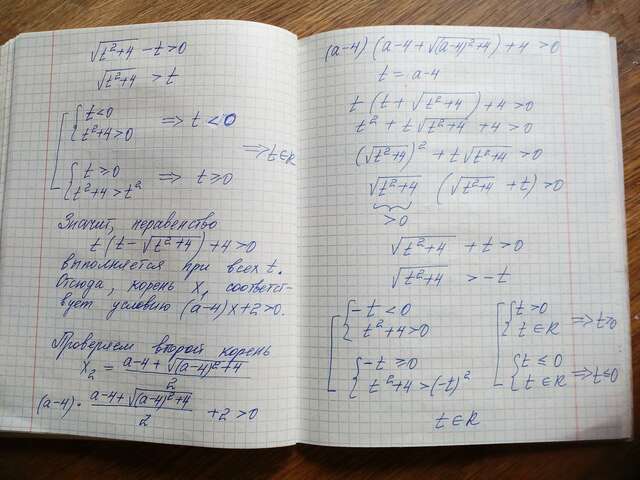 √(t²+4) - t > 0
√(t²+4) > t
[ { t < 0
t²+4 > 0 => t < 0
{ t ≥ 0
t²+4 > t² => t ≥ 0
=> t ∈ R
Значит, неравенство
t (t - √(t²+4)) + 4 > 0
выполняется при всех t.
Отсюда, корень x₁ соответст-
вует условию (a-4)x+2>0.
Проверяем второй корень
x₂ = (a-4+√((a-4)²+4))/2
(a-4) · (a-4+√((a-4)²+4))/2 + 2 > 0
(a-4) (a-4+√((a-4)²+4)) + 4 > 0
t = a-4
t (t + √(t²+4)) + 4 > 0
t² + t√(t²+4) + 4 > 0
(√(t²+4))² + t√(t²+4) > 0
√(t²+4) (√(t²+4) + t) > 0
> 0
√(t²+4) + t > 0
√(t²+4) > -t
[ { -t < 0
t²+4 > 0
{ -t ≥ 0
t²+4 > (-t)²
[ { t > 0
t ∈ R => t > 0
{ t ≤ 0
t ∈ R => t ≤ 0
t ∈ R